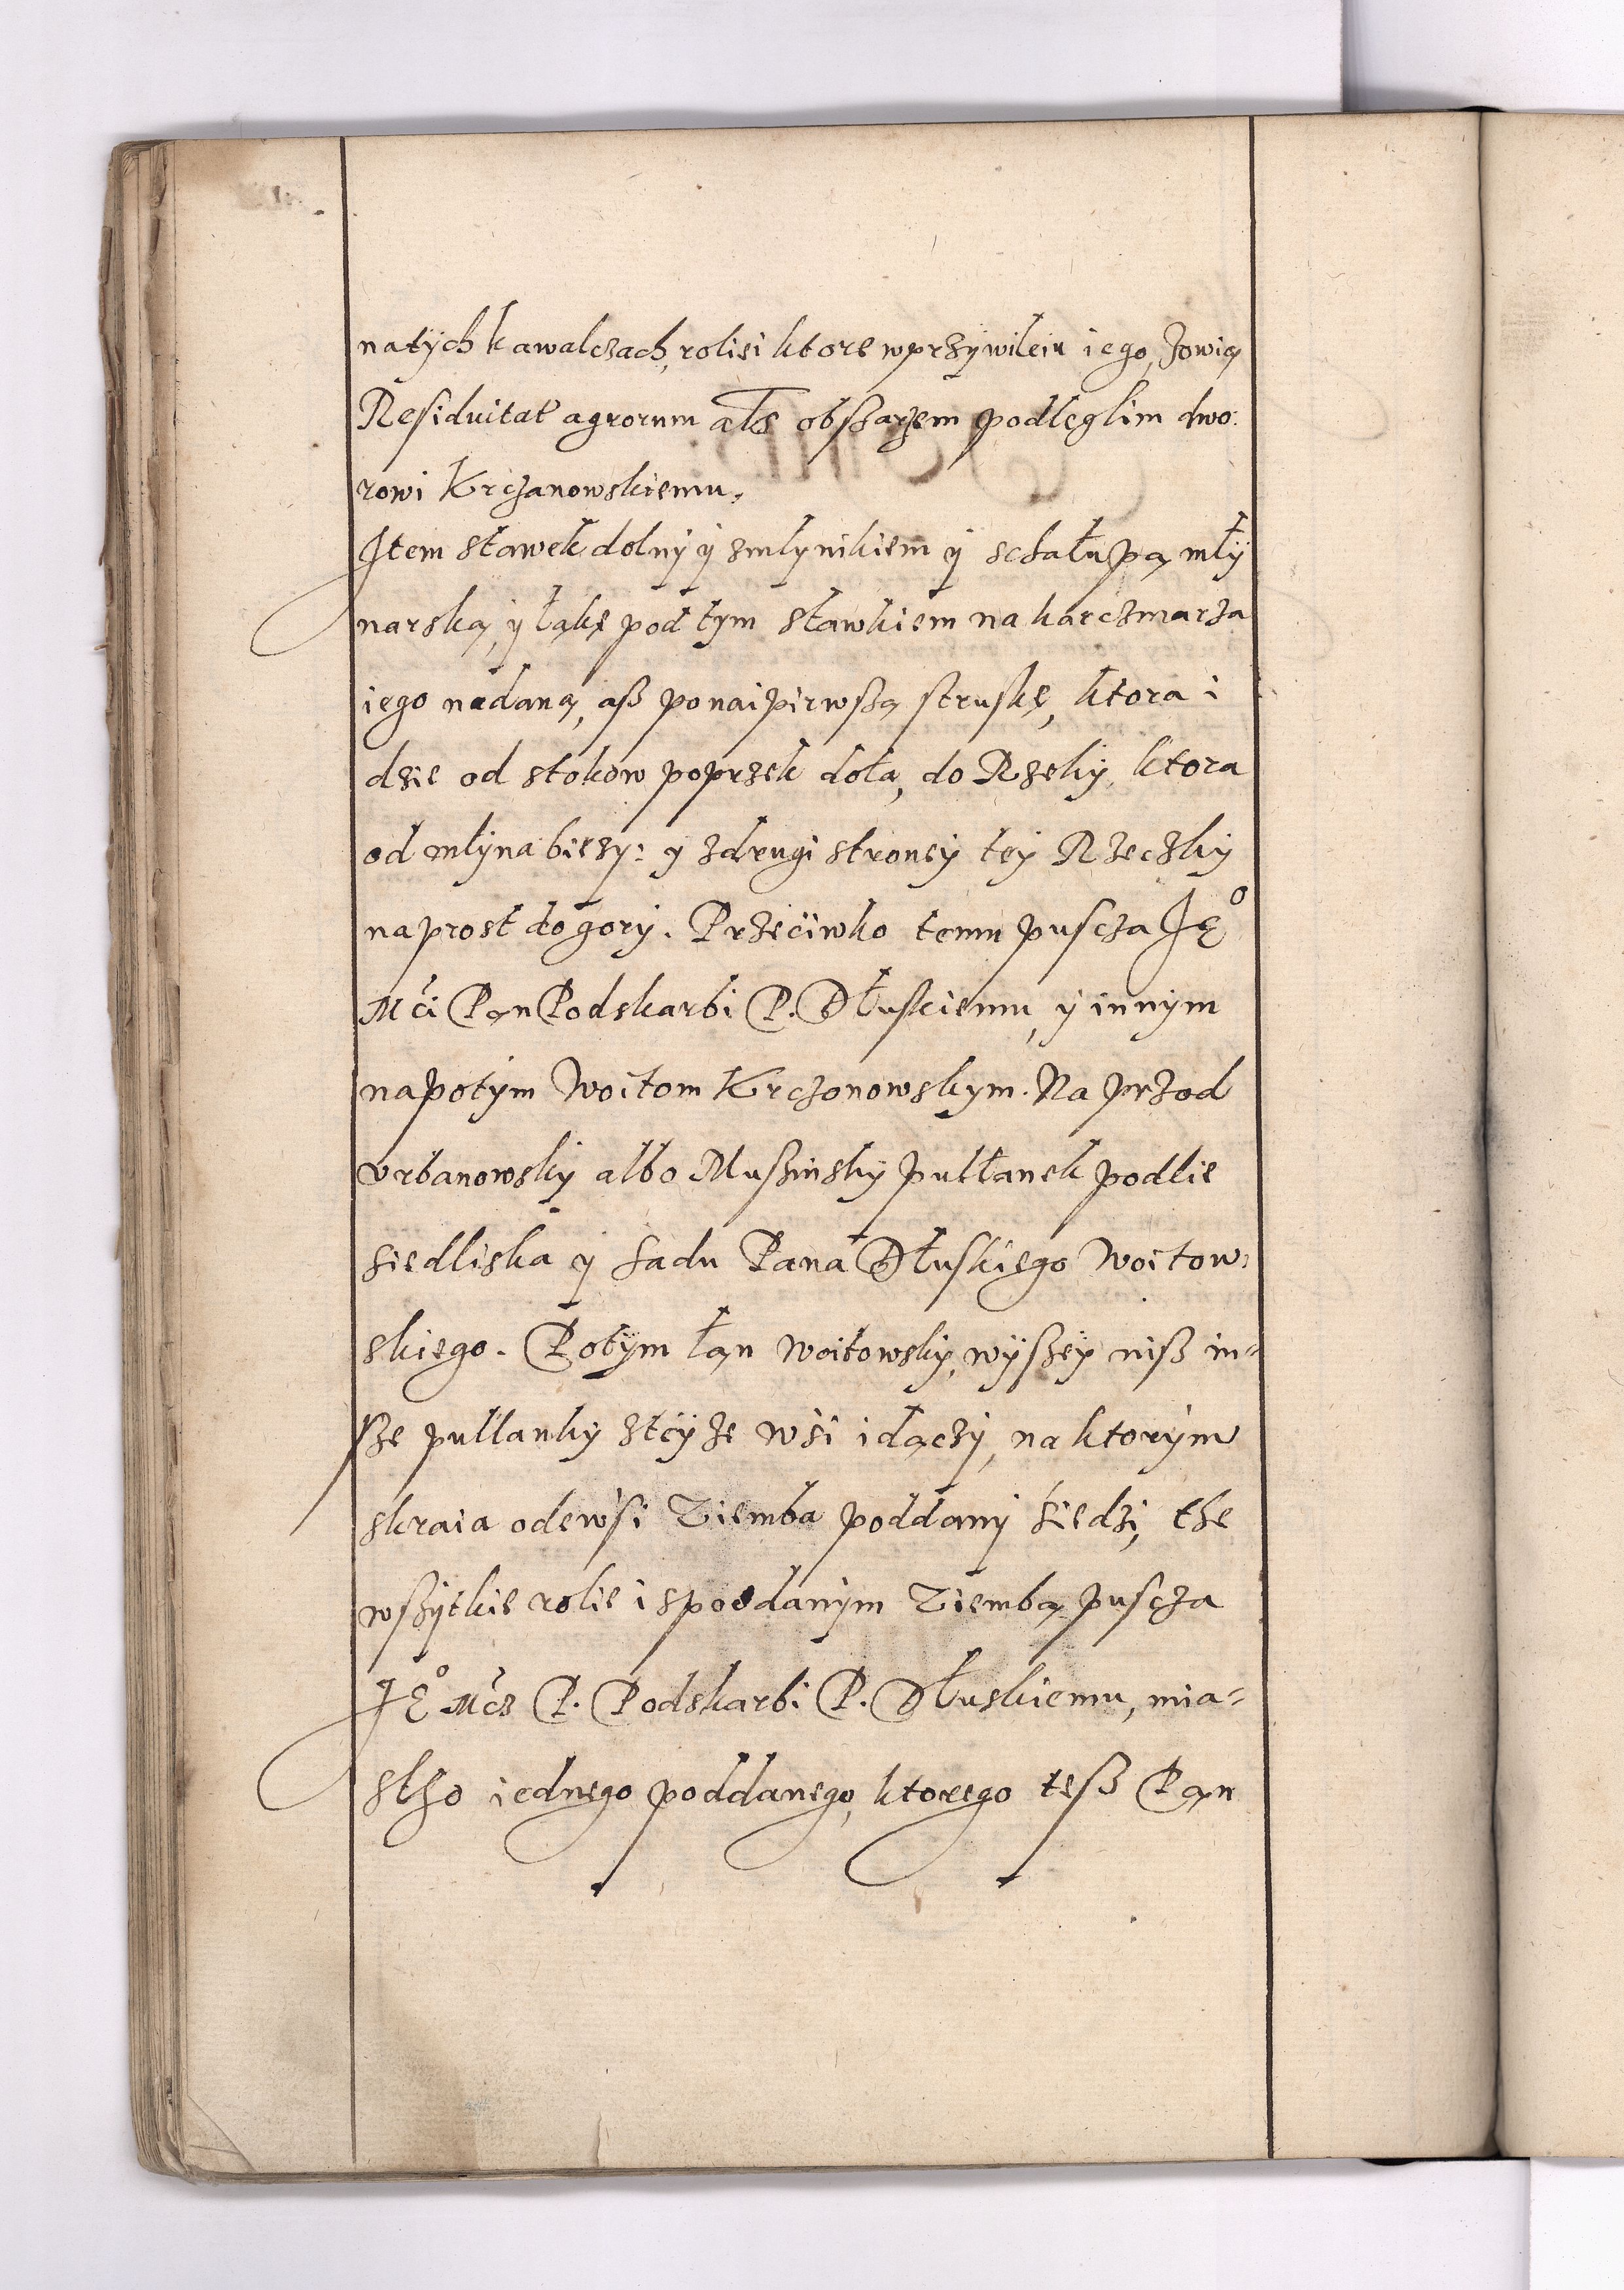 natÿch kawalczach, roliei ktore wprzÿwileiu iego, zowią
Residuitat agrorum als obszarzem podlęglim dwo:
rowi Krczanowskiemu.
Item stawek dolnÿ ÿ zmłynikiem ÿ schałupą młÿ
narską, ÿ łąkę pod tym stawkiem na karczmarza
iego nadaną, asz ponaipirwszą struskę, ktora i
dzie od stokow poprzek dołą, do Rzekÿ, ktora
od młÿna bieży: ÿ zdrugi stroneÿ teÿ Rzeczkÿ
naprost do gorÿ. Przeciwko temu puscza Jęo
Mći Pan Podskarbi P. Dłuskiemu, ÿ innÿm
napotÿm Woitom Krczonowskym. Na przod
Vrbanowskÿ albo Muszinskÿ pułłanek podlie
siedliska ÿ sadu Pana Dłuskiego Woitow:
skiego. Potÿm łąn Woitowskÿ, wÿszeÿ nisz in=
sze pułlankÿ zteÿ ze wsi idączÿ, na ktorÿm
skraia odewsi Ziemba poddanÿ siedzi, the
wszÿtkie rolie i spoddanÿm Ziembą puscza
Jęo Mcz P. Podskarbi P. Dłuskiemu, mia=
stho iednego poddanego, ktorego tesz Pan